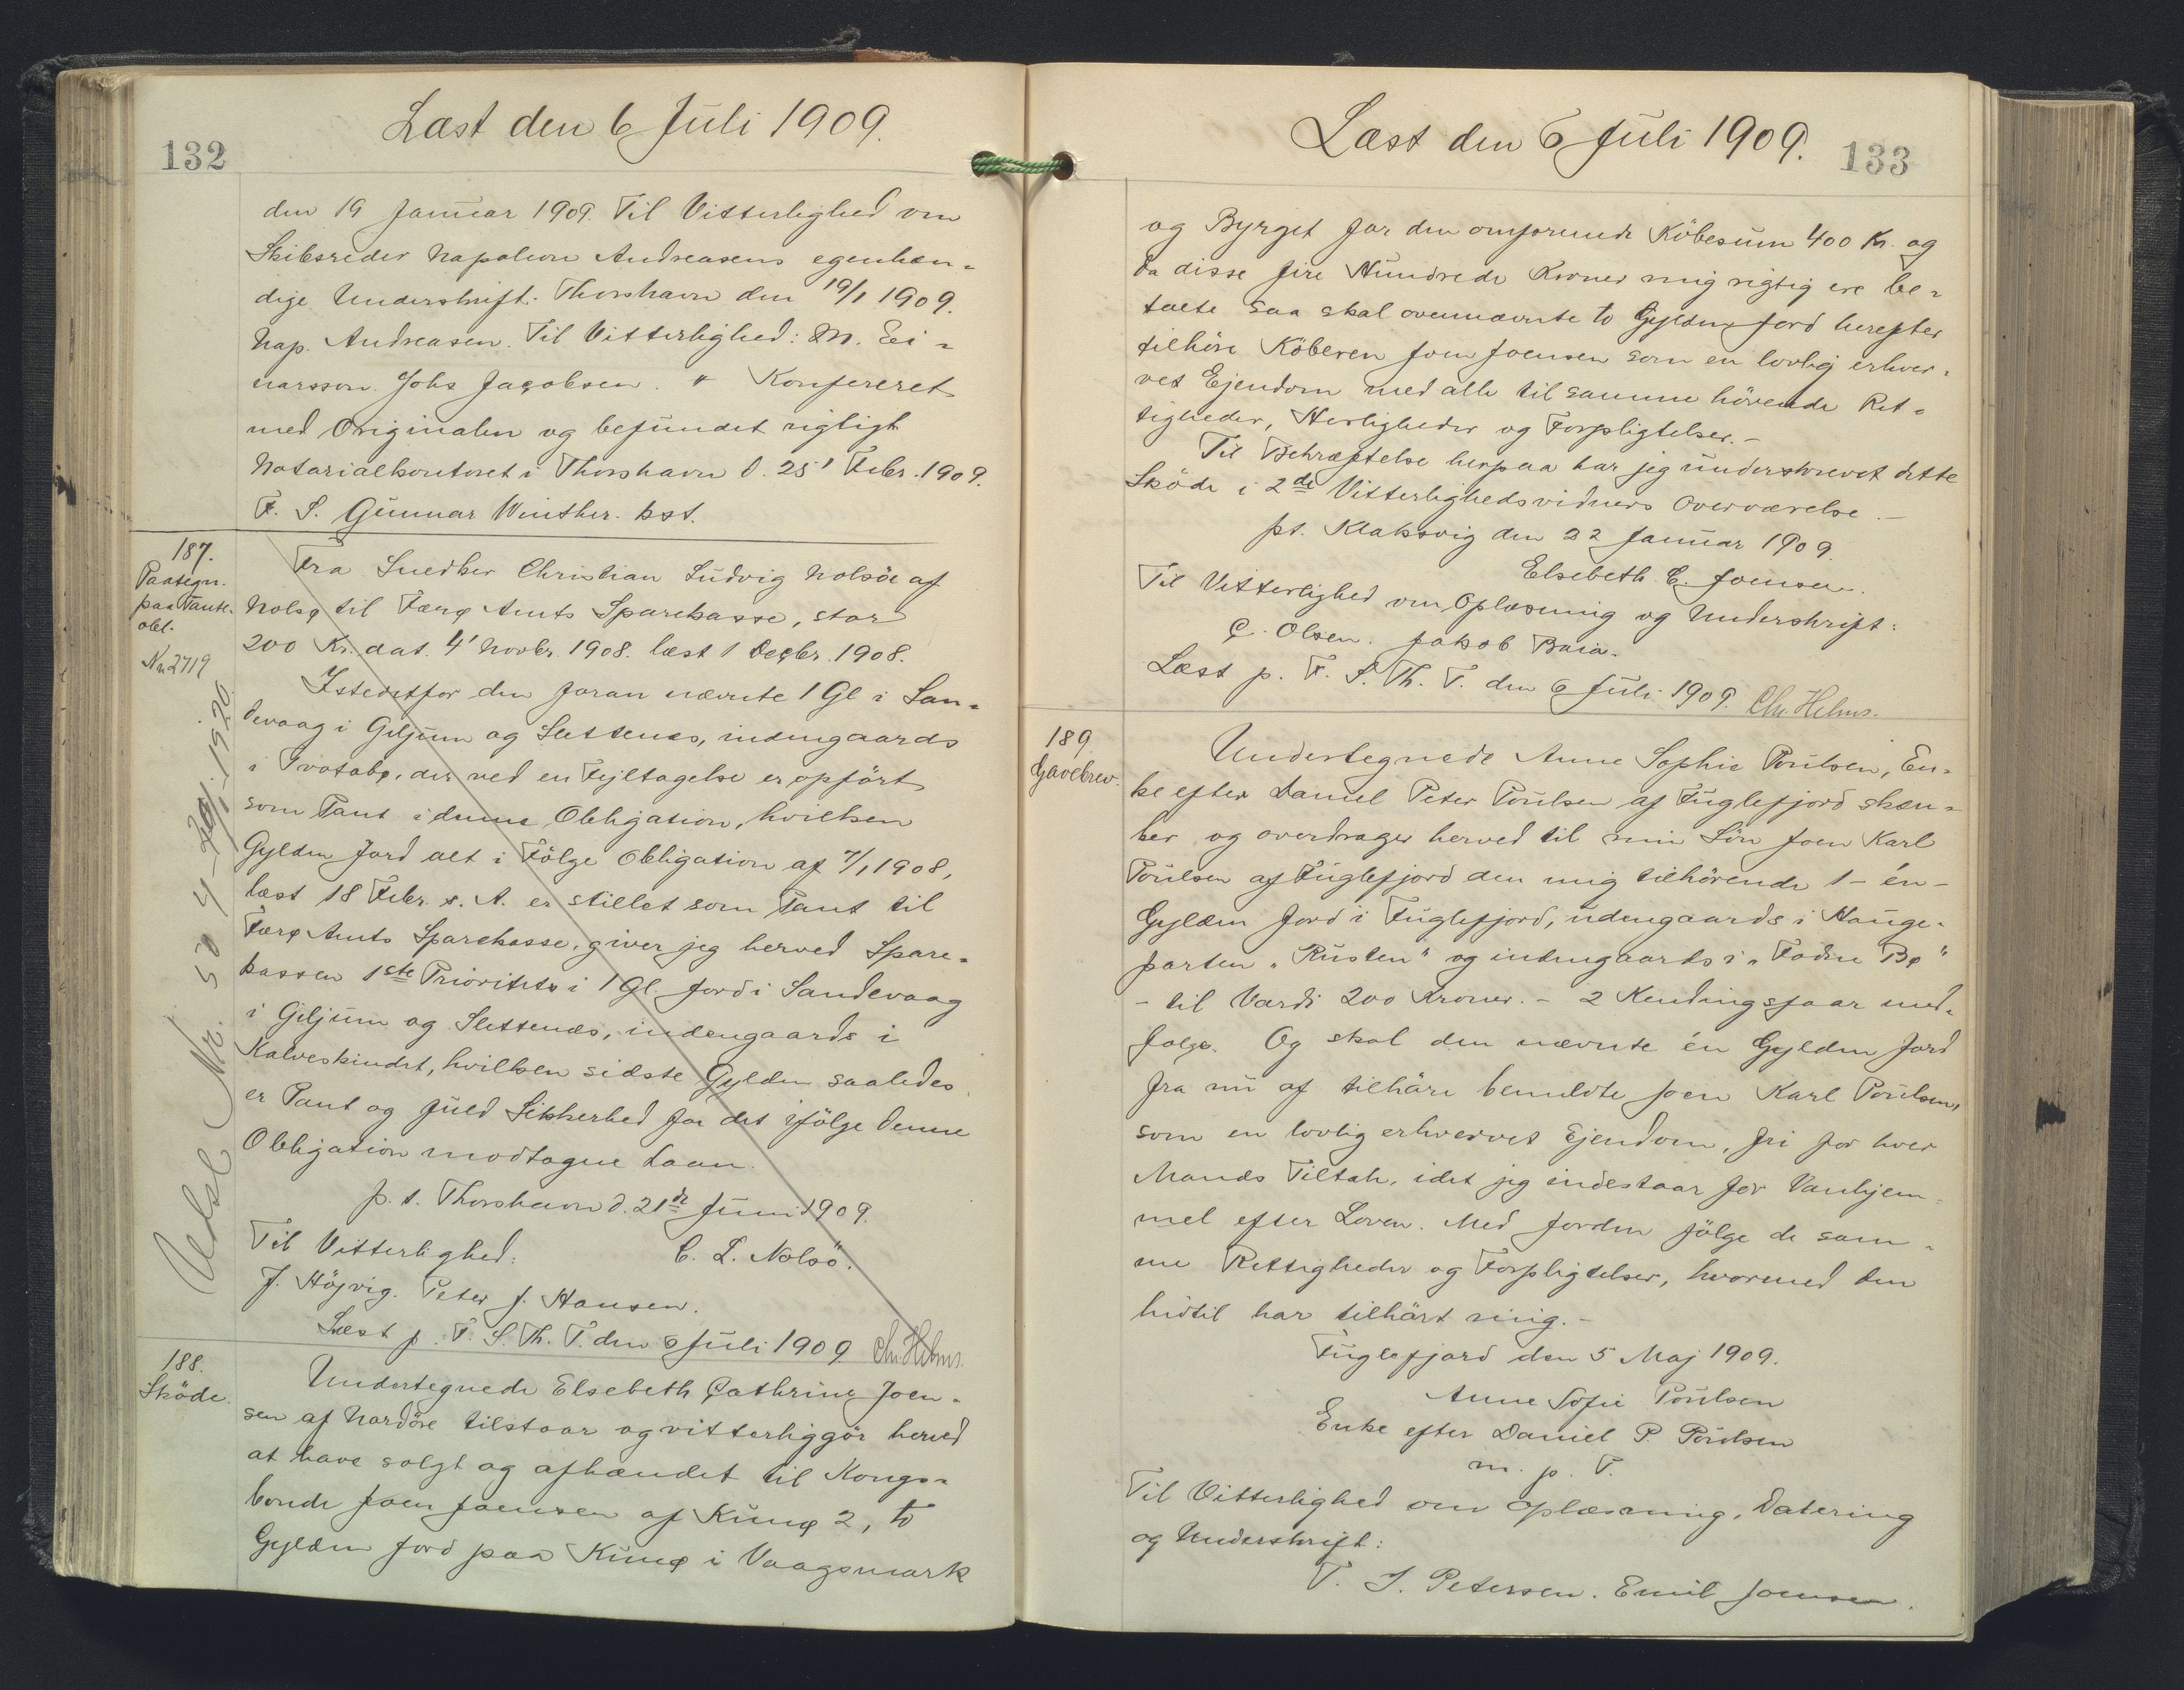 132
Læst den 6 Juli 1909.
den 19 Januar 1909. Til Vitterlighed om
Skibsreder Napoleon Andreasens egenhæn-
dige Underskrift. Thorshavn den 19/1 1909.
Nap. Andreasen. Til Vitterlighed: M. Ei-
narsson. Johs Jacobsen. Konfereret
med Originalen og befundet rigtigt
Notarialkontoret i Thorshavn d. 25' Febr. 1909.
F. S. Gunnar Winther. kst.
187.
Paategn.
paa Pante-
obl.
Nr 2719
Fra Snedker Christian Ludvig Nolsöe af
Nolsø til Færø Amts Sparekasse, stor
200 Kr. dat. 4' Novbr. 1908. læst 1 Decbr. 1908.
Istedetfor den foran nævnte 1 Gl i San-
devaag i Giljum og Slettenes, indengaards
i Tvotabø, der ved en Fejltagelse er opfört
som Pant i denne Obligation, hvilken
Gylden Jord alt i Fölge Obligation af 7/1 1908,
læst 18 Febr. s. A. er stillet som Pant til
Færø Amts Sparekasse, giver jeg herved Spare-
kassen 1ste Prioritet i 1 Gl. Jord i Sandevaag
i Giljum og Slettenes, indengaards i
Kalveskindet, hvilken sidste Gylden saaledes
er Pant og fuld Sikkerhed for det ifölge denne
Obligation modtagne Laan.
p. t. Thorshavn d. 21de Juni 1909.
Til Vitterlighed: C. L. Nolsö.
J. Höjvig. Peter J. Hansen.
Læst p. F. S. Th. T. den 6 Juli 1909 Chr. Helms.
Udsl Nr. 1920
188.
Sköde.
Undertegnede Elsebeth Cathrine Joen-
sen af Nordöre tilstaar og vitterliggör herved
at have solgt og afhændet til Kongs-
bonde Joen Joensen af Kunø 2, to
Gylden Jord paa Kunø i Vaagsmark
Læst den 6 Juli 1909.
133
og Byrget for den omforenede Köbesum 400 Kr. og
da disse fire Hundrede Kroner mig rigtig ere be-
talte saa skal ovennævnte to Gylden Jord herefter
tilhöre Köberen Joen Joensen som en lovlig erhver-
vet Ejendom med alle til samme hörende Ret-
tigheder, Herligheder og Forpligtelser.-
Til Bekræftelse herpaa har jeg underskrevet dette
Sköde i 2de Vitterlighedsvidners Overværelse.-
pt. Klaksvig den 22 Januar 1909.
Elsebeth C. Joensen.
Til Vitterlighed om Oplæsning og Underskrift:
C. Olsen. Jakob Baia.
Læst p. F. S. Th. T. den 6 Juli 1909. Chr. Helms.
189.
Gavebrev.
Undertegnede Anne Sophie Poulsen, En-
ke efter Daniel Peter Poulsen af Fuglefjord skæn-
ker og overdrager herved til min Sön Joen Karl
Poulsen af Fuglefjord den mig tilhörende 1 - én -
Gylden Jord i Fuglefjord, udengaards i Hauge-
parten „Rusten" og indengaards i „Fodne Bø"
- til Værdi 200 Kroner. - 2 Kendingsfaar med-
følge. Og skal den nævnte én Gylden Jord
fra nu af tilhöre bemeldte Joen Karl Poulsen,
som en lovlig erhvervet Ejendom, fri for hver
Mands Tiltale, idet jeg indestaar for Vanhjem-
mel efter Loven. Med Jorden fölge de sam-
me Rettigheder og Forpligtelser, hvormed den
hidtil har tilhört mig. -
Fuglefjord den 5 Maj 1909.
Anne Sofie Poulsen
Enke efter Daniel P. Poulsen
m. p. P.
Til Vitterlighed om Oplæsning, Datering
og Underskrift:
P. J. Petersen. Emil Joensen.